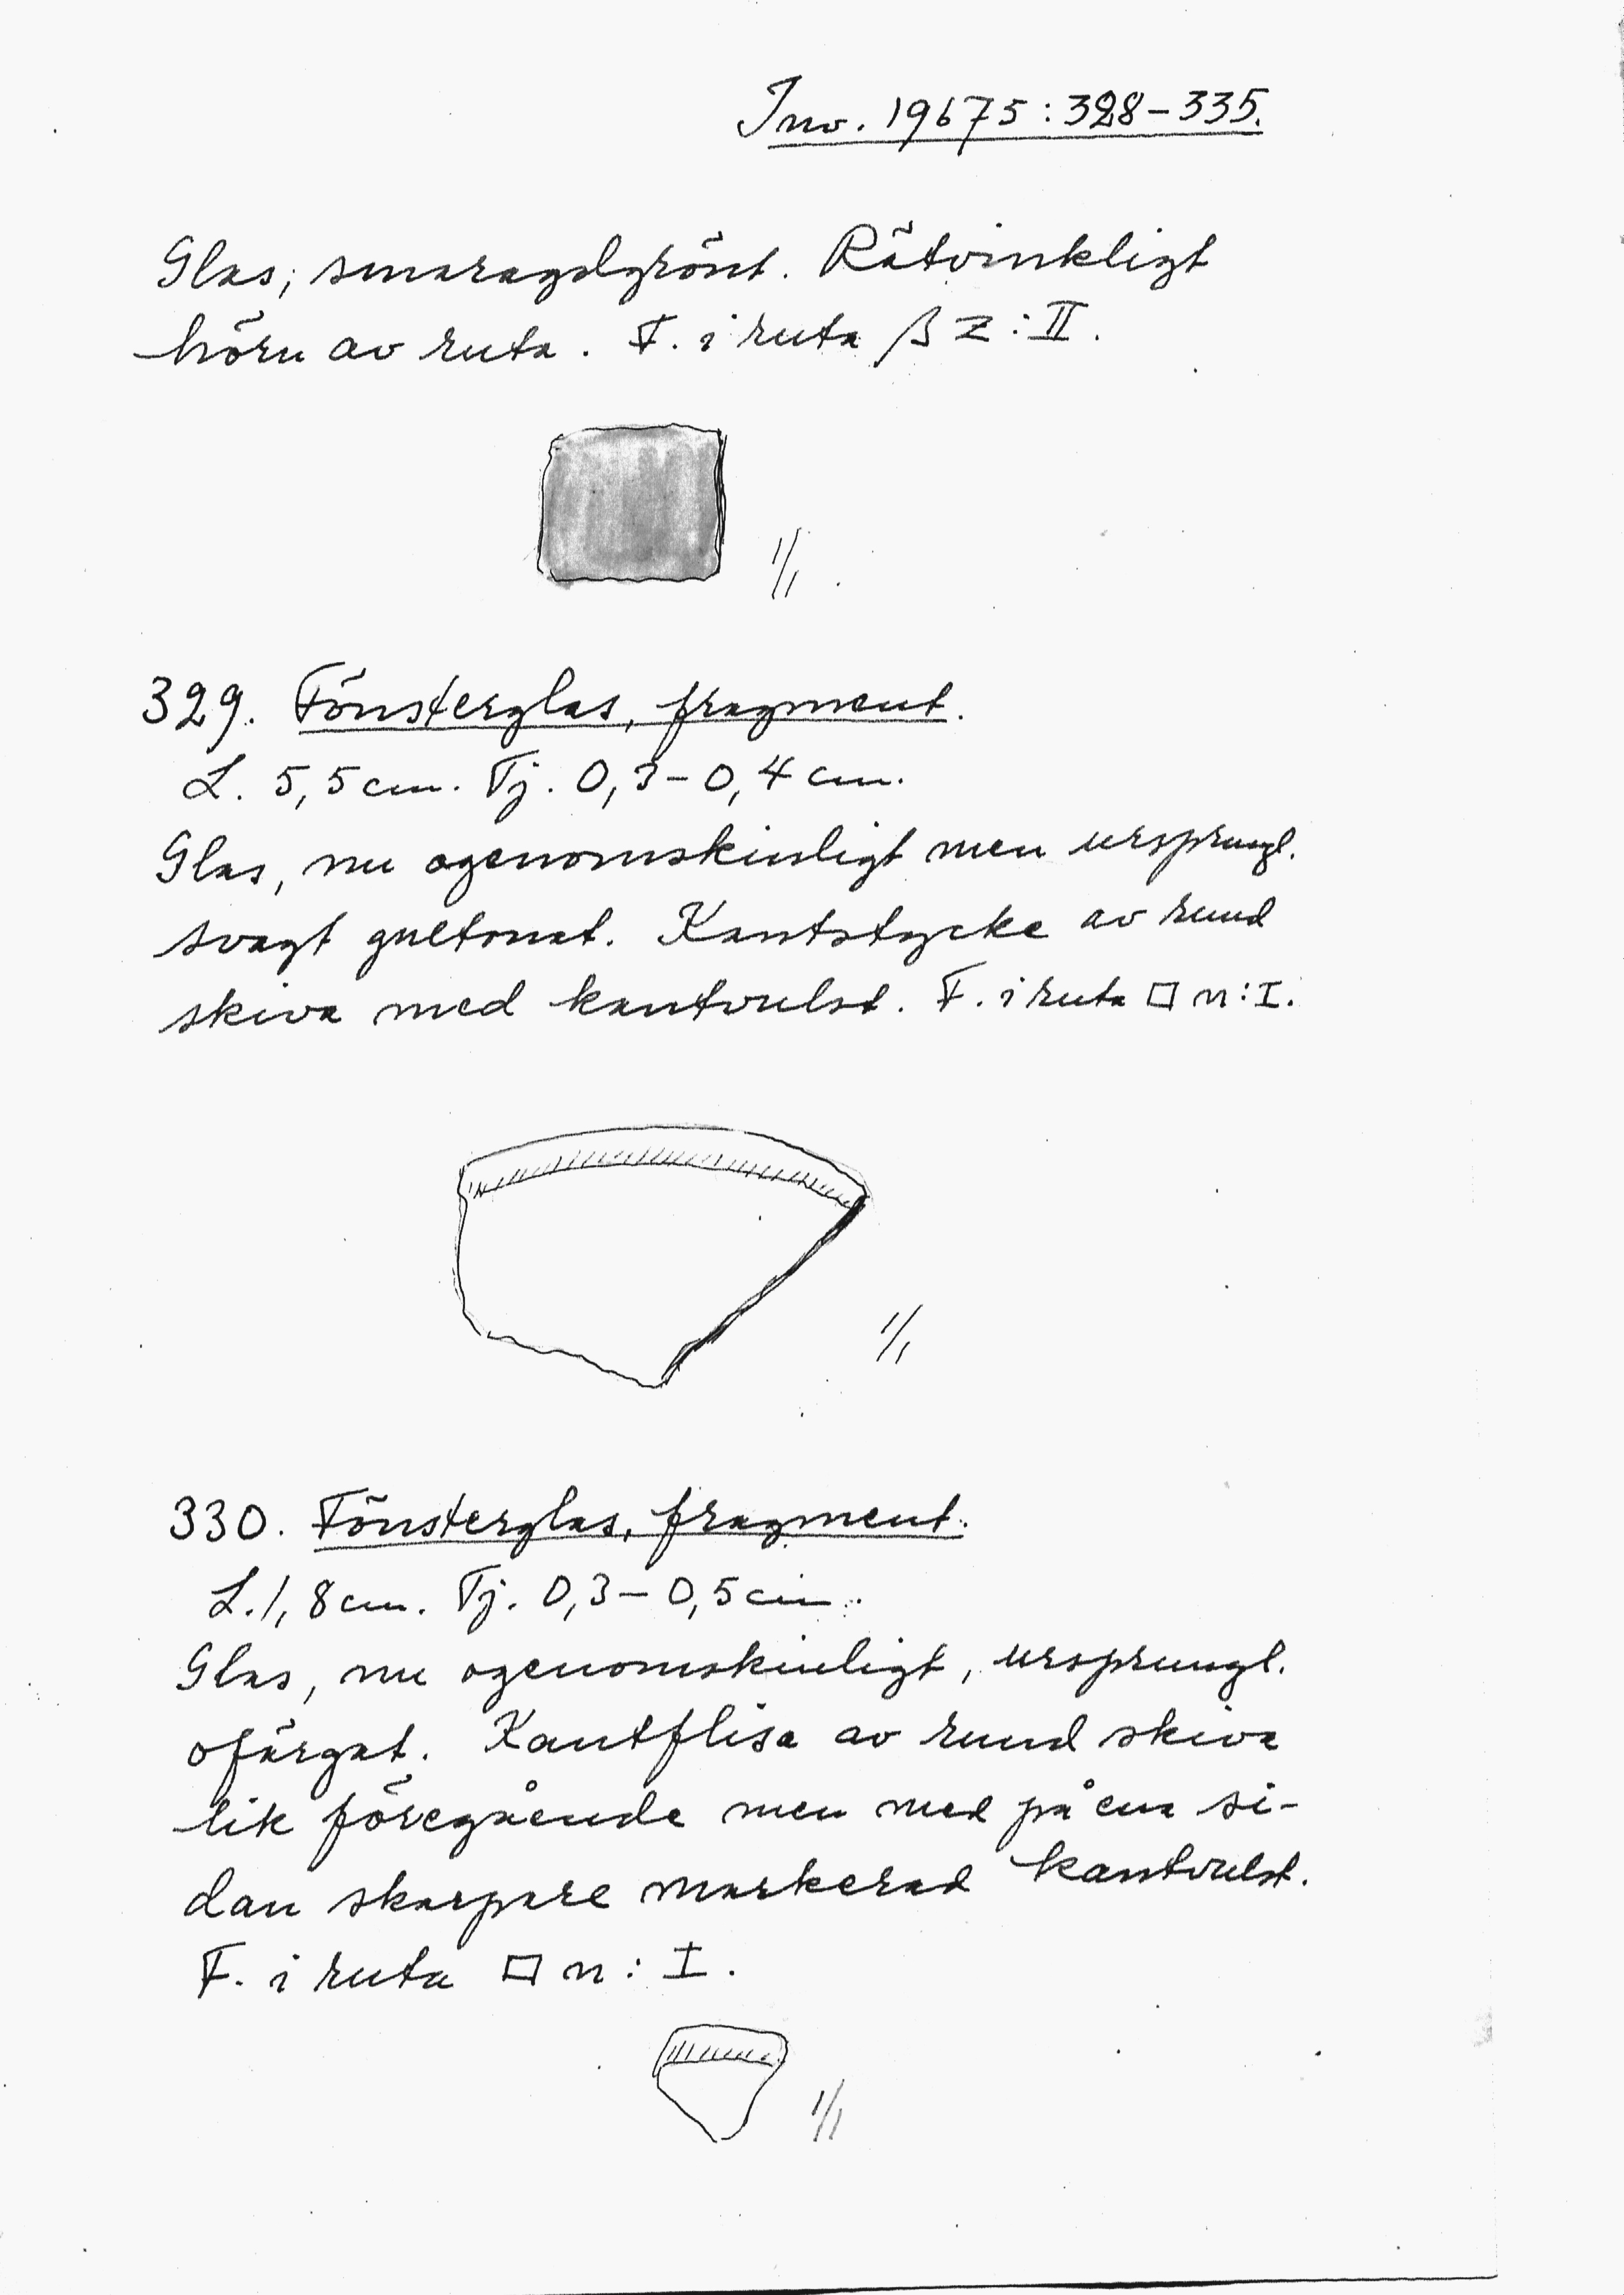 Inv. 19675:328-335.
Glas, smaragdgrönt. Rätvinkligt
hörn av ruta. F. i ruta β z:II.
1/1.
329. Fönsterglas, fragment.
L. 5,5 cm. Tj. 0,3-0,4 cm.
Glas, nu ogenomskinligt men ursprungl.
svagt gultonat. Kantstycke av rund
skiva med kantvulst. F. i ruta □ n:I.
1/1
330. Fönsterglas, fragment.
L. 1,8 cm. Tj. 0,3-0,5 cm.
Glas, nu ogenomskinligt, ursprungl.
ofärgat. Kantflisa av rund skiva
lik föregående men med på ena si-
dan skarpare markerad kantvulst.
F. i ruta □ n:I.
1/1